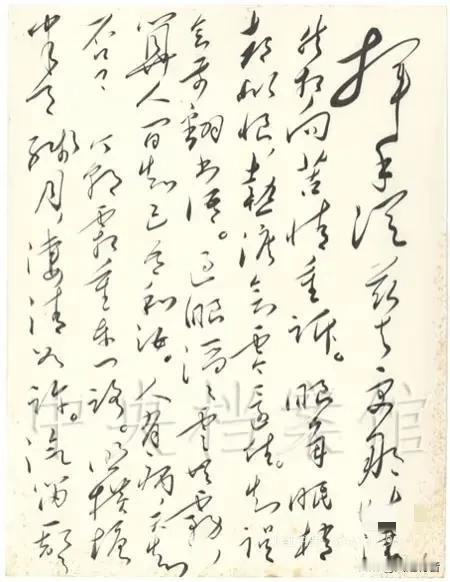 挥手从兹去更那堪凄
然相向,苦情重诉。眼角眉梢
都似恨,热泪欲零还住。知误
会前翻书语。过眼滔滔云共雾,
算人间知己吾和汝。人有病,天知
否? 今朝霜重东门路。照横塘
半天残月,凄清如许。汽笛一声
中央档案馆